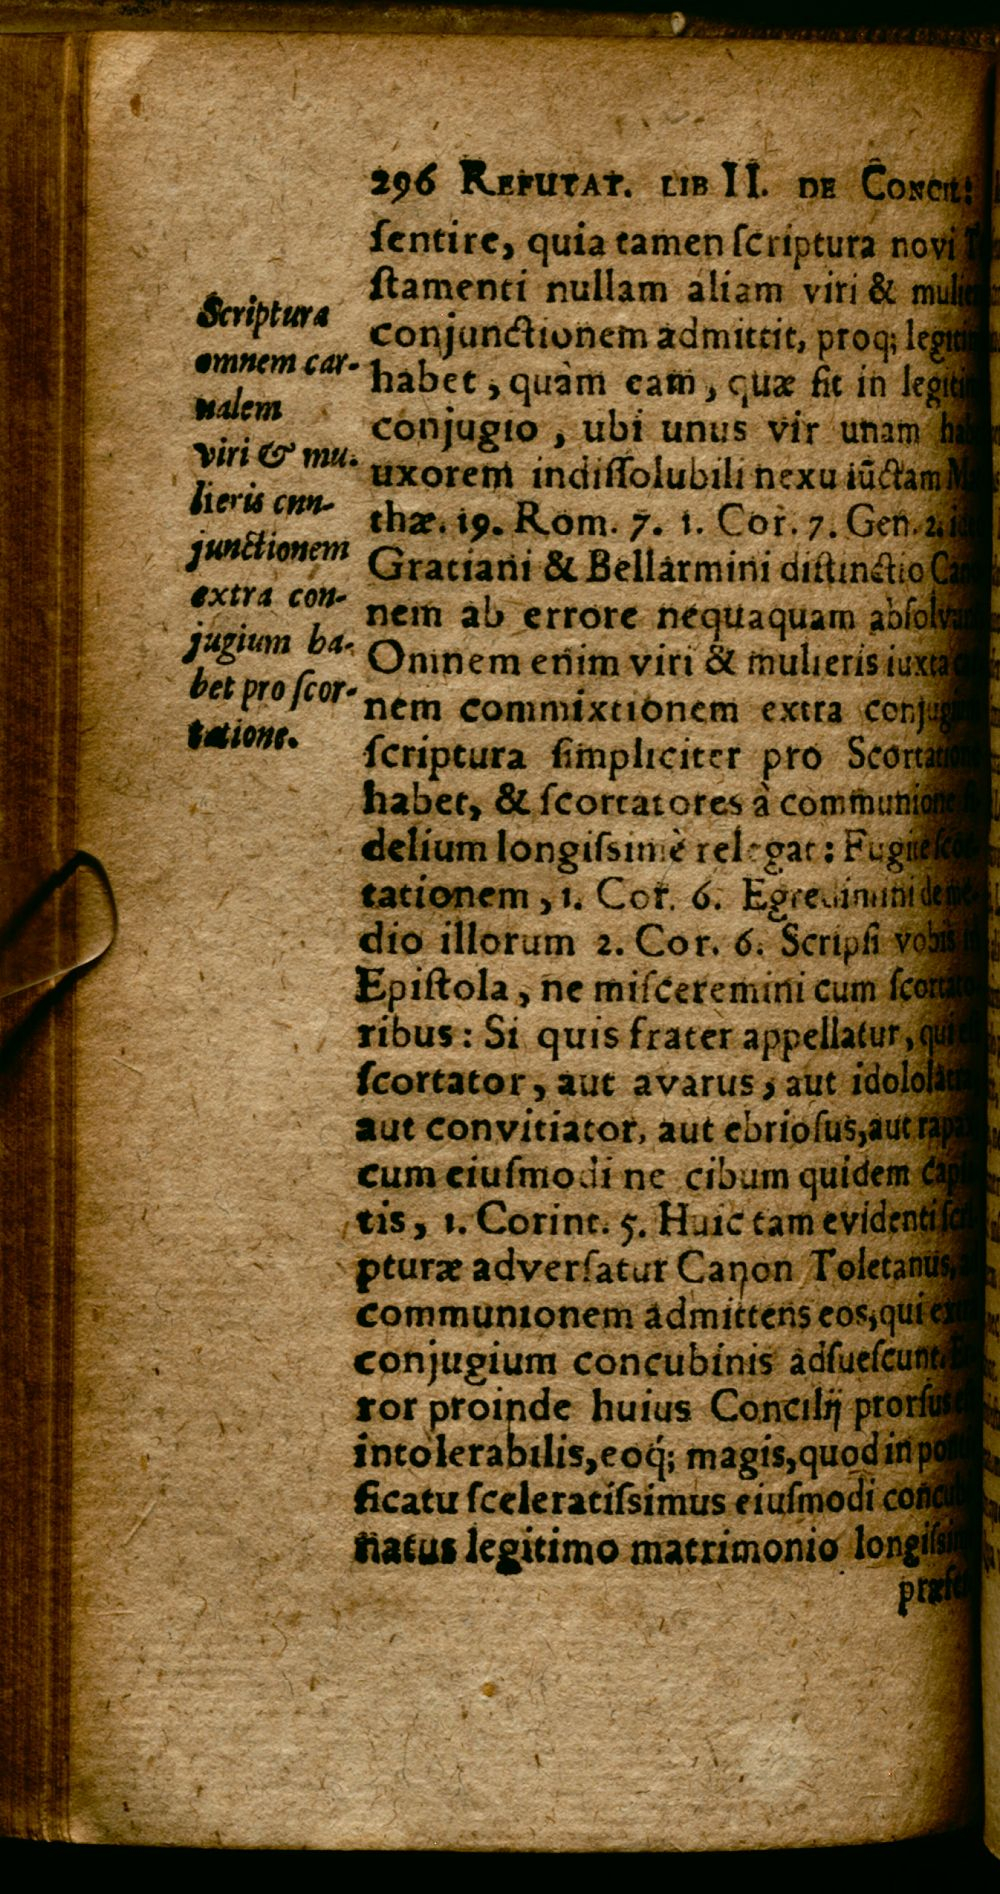 296 REFUTAT. LIB II. DE CONCIL:
sentire, quia tamen scriptura novi
stamenti nullam aliam viri & 
conjunctionem admittit, proq;
habet, quàm eam, quæ fit in
conjugio, ubi unus vir unam
uxorem indissolubili nexu iũctam
thæ. 19. Rom. 7. 1. Cor. 7. Gen. 2.
Gratiani & Bellarmini distinctio
nem ab errore nequaquam
Omnem enim viri & mulieris iuxta
nem commixtionem extra
scriptura simpliciter pro Scortatione
habet, & scortatores à communione
delium longissimè relegat: Fugite
tationem, 1. Cor. 6. Egredimini de me-
dio illorum 2. Cor. 6. Scripsi vobis
Epistola, ne misceremini cum
ribus: Si quis frater appellatur, qui
scortator, aut avarus, aut
aut convitiator, aut ebriosus, aut
cum eiusmodi ne cibum quidem
tis, 1. Corint. 5. Huic tam evidenti
pturæ adversatur Canon Toletanus,
communionem admittens eos, qui
conjugium concubinis adsuescunt.
ror proinde huius Concilij prorsus
intolerabilis, eoq́; magis, quod in
ficatu sceleratissimus eiusmodi
natus legitimo matrimonio
Scriptura
omnem car-
nalem
viri & mu-
lieris cnn-
junctionem
extra con-
jugium ha-
bet pro scor-
tatione.